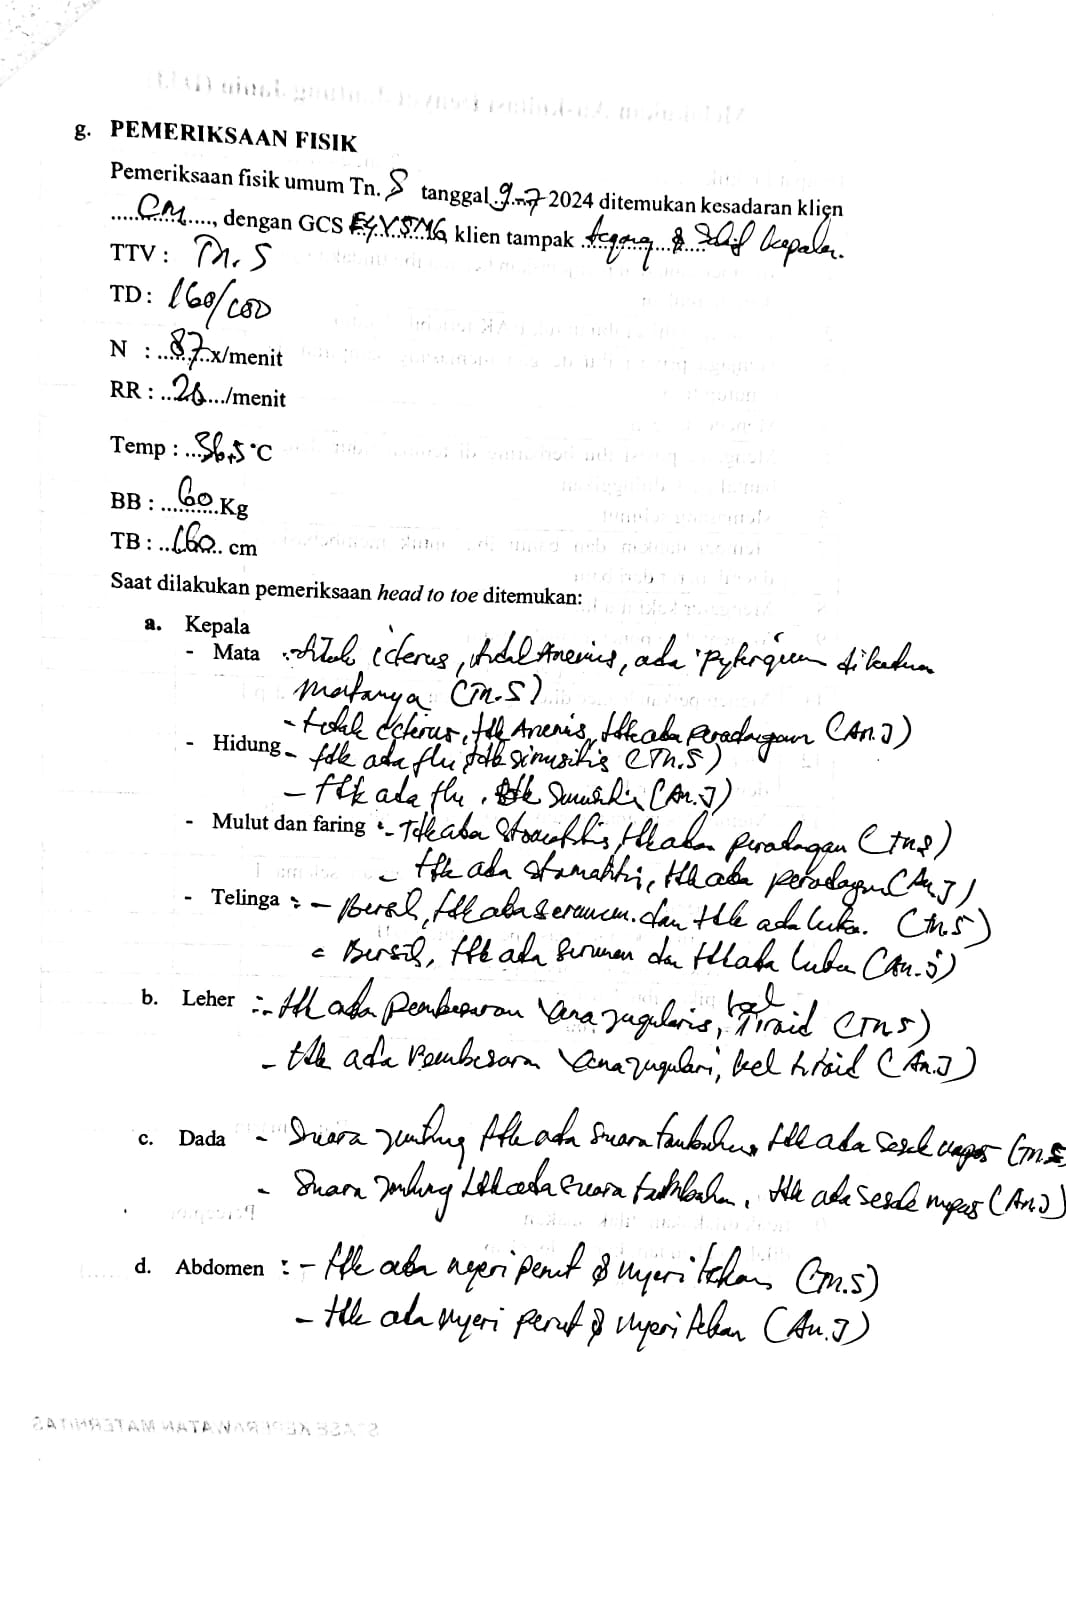 g. PEMERIKSAAN FISIK
Pemeriksaan fisik umum Tn. S tanggal 9-7 2024 ditemukan kesadaran klien
.....CM....., dengan GCS E4V5M6, klien tampak tegang & kepala.
TTV : Tn. S
TD : 160/100
N : ..87..x/menit
RR : ..20.../menit
Temp : ...36,5 °C
BB : ...60...Kg
TB : ..160.. cm
Saat dilakukan pemeriksaan head to toe ditemukan:
a. Kepala
- Mata : tidak icterus, tidak Anemis, ada dikedua
matanya (Tn.S)
- tidak icterus, tdk Anemis, tdk ada peradangan (An.J)
- Hidung - tdk ada flu, tdk sinusitis (Tn.S)
- tdk ada flu, tdk Sinusitis (An.J)
- Mulut dan faring : - Tdk ada Stomatitis, tdk ada peradangan (Tn S)
- tdk ada stomatitis, tdk ada peradangan (An J)
- Telinga : - Bersih, tdk ada serumen dan tdk ada luka. (Tn.S)
- Bersih, tdk ada serumen dan tdk ada luka (An.J)
b. Leher : - tdk ada pembesaran Vena jugularis, kel Tiroid (Tn S)
- tdk ada Pembesaran Vena jugulari, kel tiroid (An.J)
c. Dada - Suara jantung tdk ada suara tambahan, tdk ada sesak napas (Tn.S)
- Suara jantung tdk ada suara tambahan, tdk ada sesak napas (An.J)
d. Abdomen : - tdk ada nyeri perut & nyeri tekan (Tn.S)
- tdk ada nyeri perut & nyeri tekan (An.J)